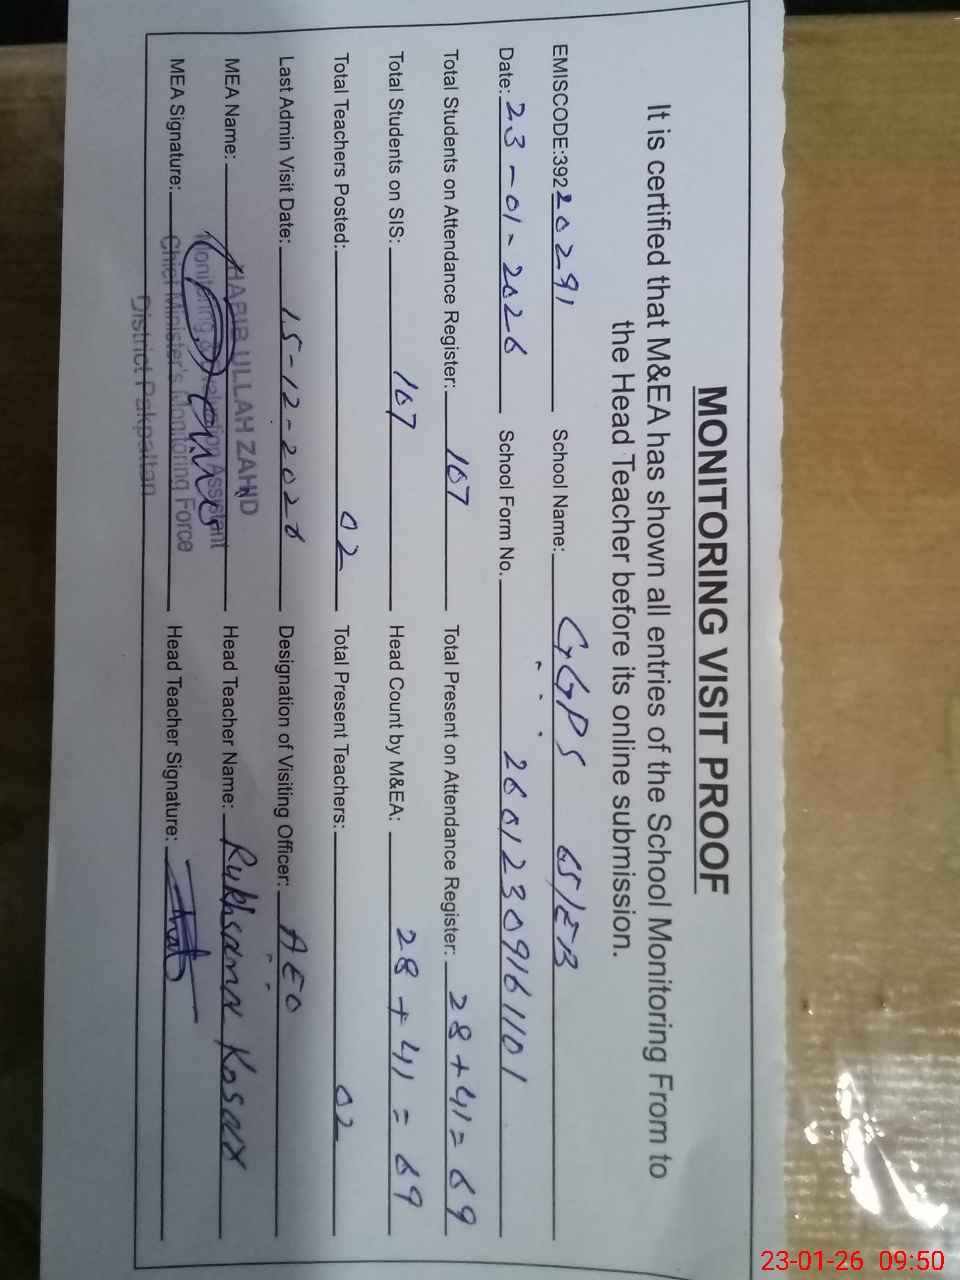 MONITORING VISIT PROOF
It is certified that M&EA has shown all entries of the School Monitoring From to
the Head Teacher before its online submission.
EMISCODE:39220291 School Name: GGPS 65/EB
Date: 23-01-2026 School Form No. 26012309161101
Total Students on Attendance Register: 107 Total Present on Attendance Register: 28+41=69
Total Students on SIS: 107 Head Count by M&EA: 28+41=69
Total Teachers Posted: 02 Total Present Teachers: 02
Last Admin Visit Date: 15-12-2026 Designation of Visiting Officer: AEO
MEA Name: HABIB ULLAH ZAHID Head Teacher Name: Rukhsana Kosar
Monitoring & Evaluation Assistant
MEA Signature: Chief Minister's Monitoring Force Head Teacher Signature:
District Pakpattan
23-01-26 09:50